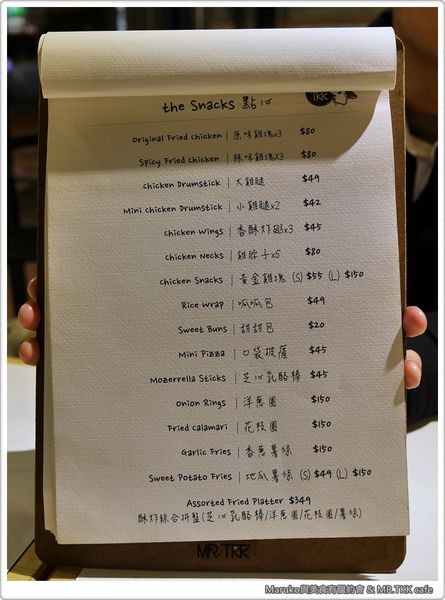 TKK
the Snacks 點心
Original Fried Chicken | 原味雞塊x3 $80
Spicy Fried Chicken | 辣味雞塊x3 $80
Chicken Drumstick | 大雞腿 $49
Mini Chicken Drumstick | 小雞腿x2 $42
Chicken Wings | 香酥炸翅x3 $45
Chicken Necks | 雞脖子x5 $80
Chicken Snacks | 黃金雞塊 (S) $55 (L) $150
Rice Wrap | 呱呱包 $49
Sweet Buns | 甜甜包 $20
Mini Pizza | 口袋披薩 $45
Mozerrella Sticks | 芝心乳酪棒 $45
Onion Rings | 洋蔥圈 $150
Fried Calamari | 花枝圈 $150
Garlic Fries | 香蔥薯條 $150
Sweet Potato Fries | 地瓜薯條 (S) $49 (L) $150
Assorted Fried Platter $349
酥炸綜合拼盤(芝心乳酪棒/洋蔥圈/花枝圈/薯條)
MR.TKK
Maruko與美食有個約會 & MR.TKK cafe